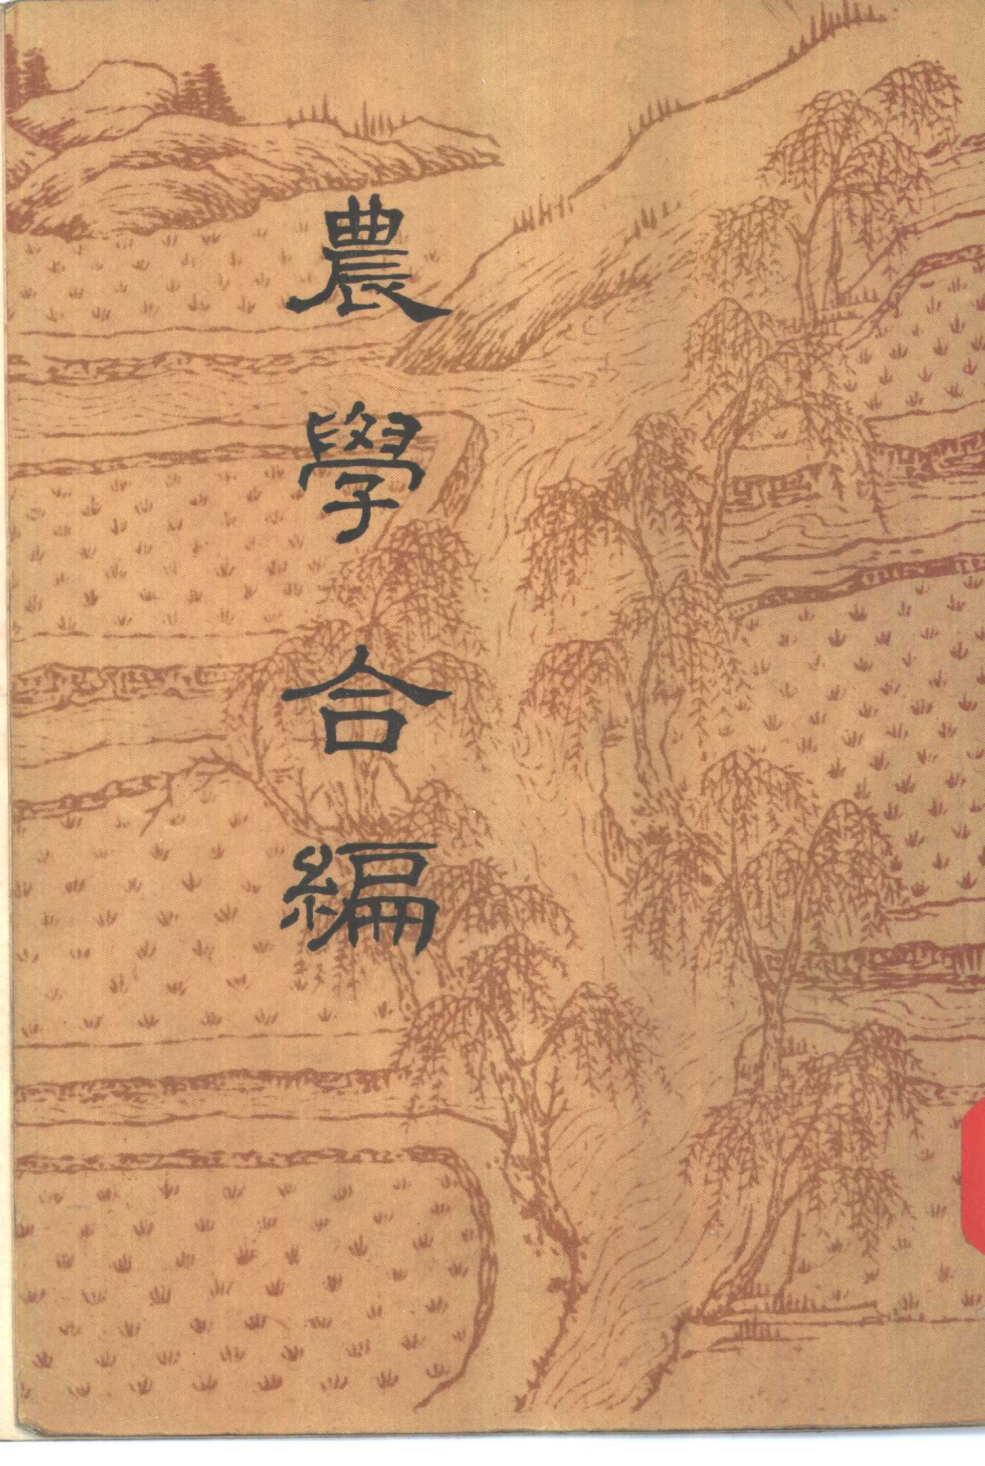 農學合編